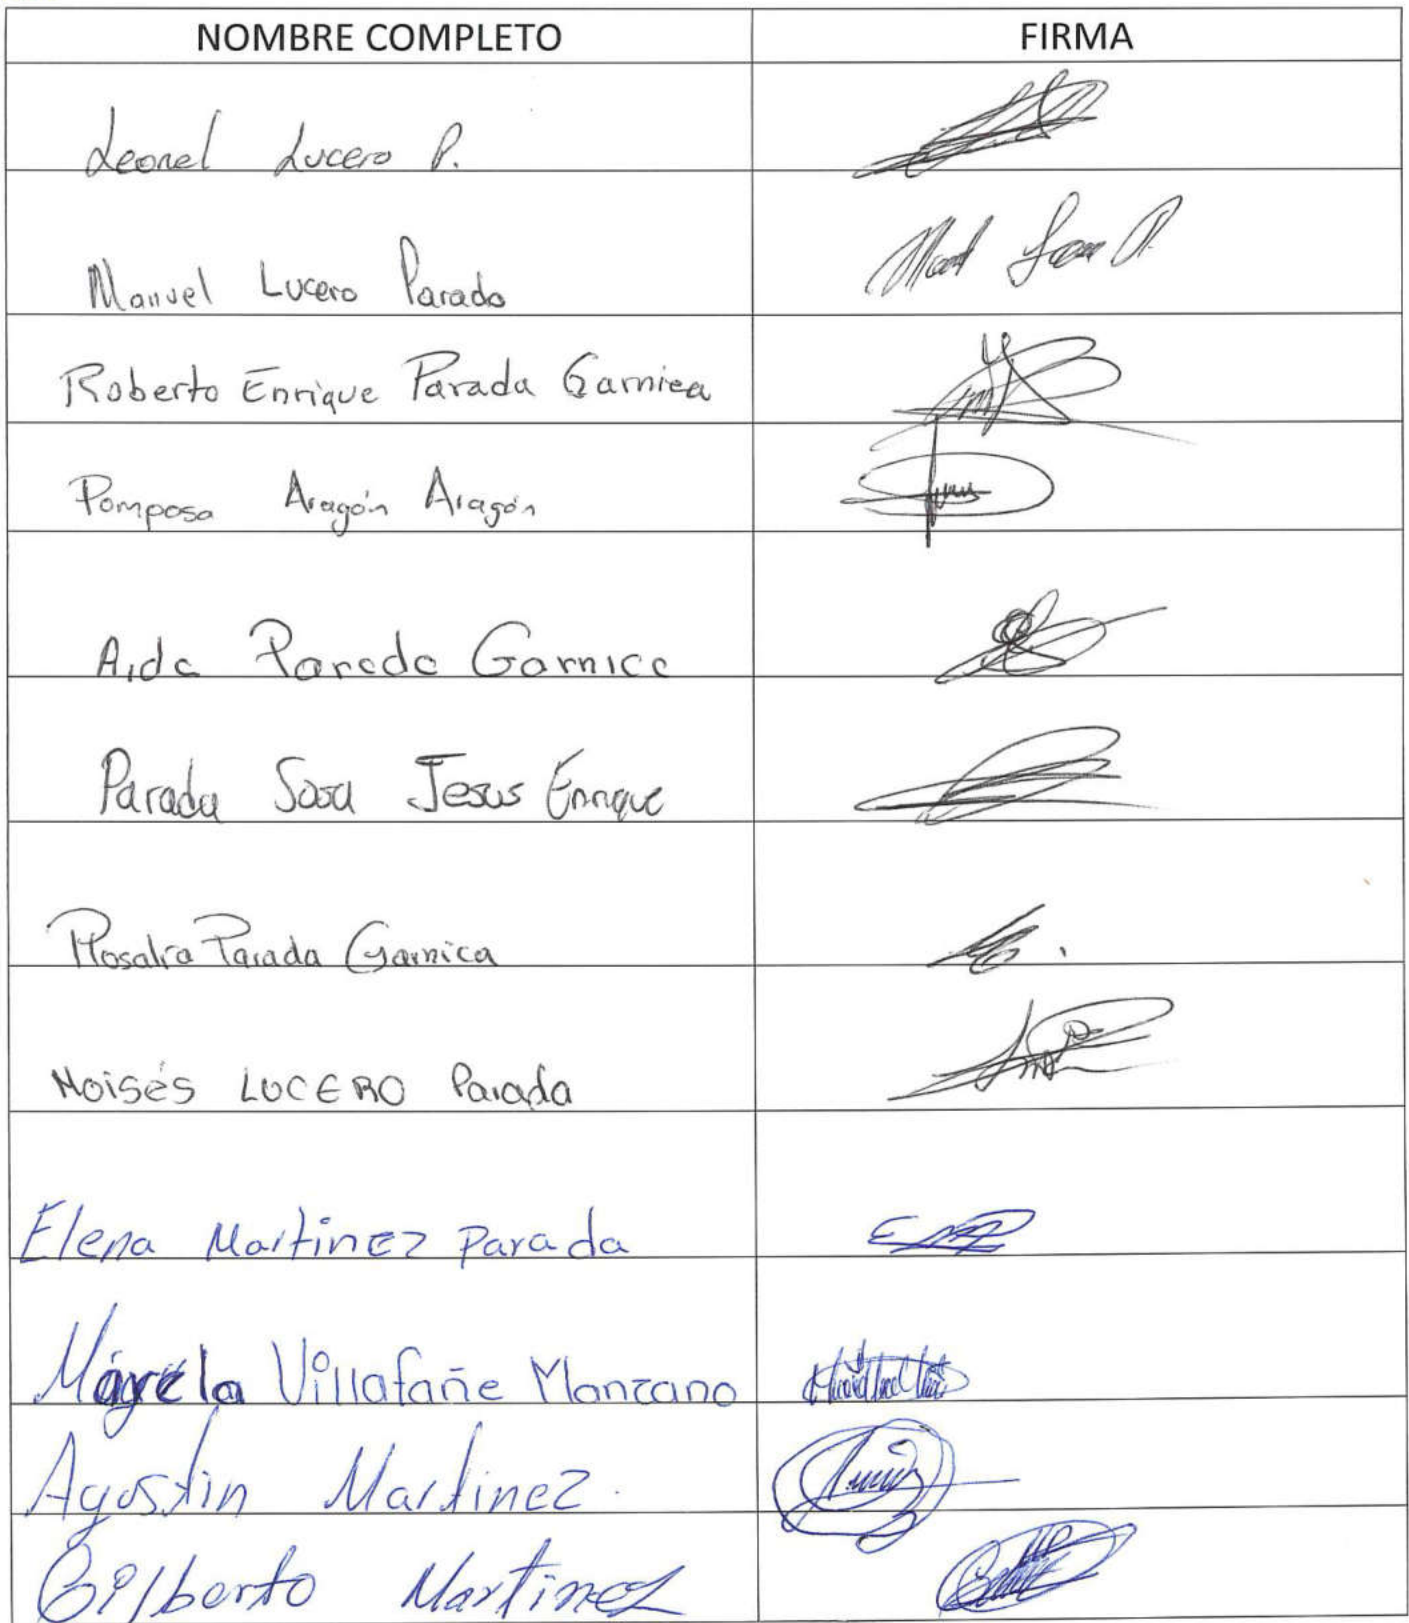 NOMBRE COMPLETO FIRMA
Leonel Lucero P.
Manuel Lucero Parada
Roberto Enrique Parada Garnica
Pomposa Aragón Aragón
Aida Parada Garnica
Parada Sosa Jesus Enrique
Rosalia Parada Garnica
Moisés LUCERO Parada
Elena Martinez Parada
Villafañe Manzano
Agustin Martinez
Gilberto Martinez